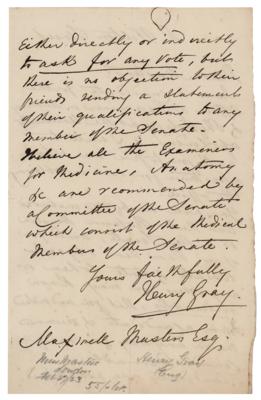 Either directly or indirectly
to ask for any vote, but
there is no objection to their
friends sending a statement
of their qualifications to any
member of the Senate.
I believe all the Examiners
for Medicine, Anatomy
&c are recommended by
a Committee of the Senate
which consist of the Medical
Members of the Senate.
Yours faithfully
Henry Gray.
Maxwell Masters Esq.
Henry Gray
London